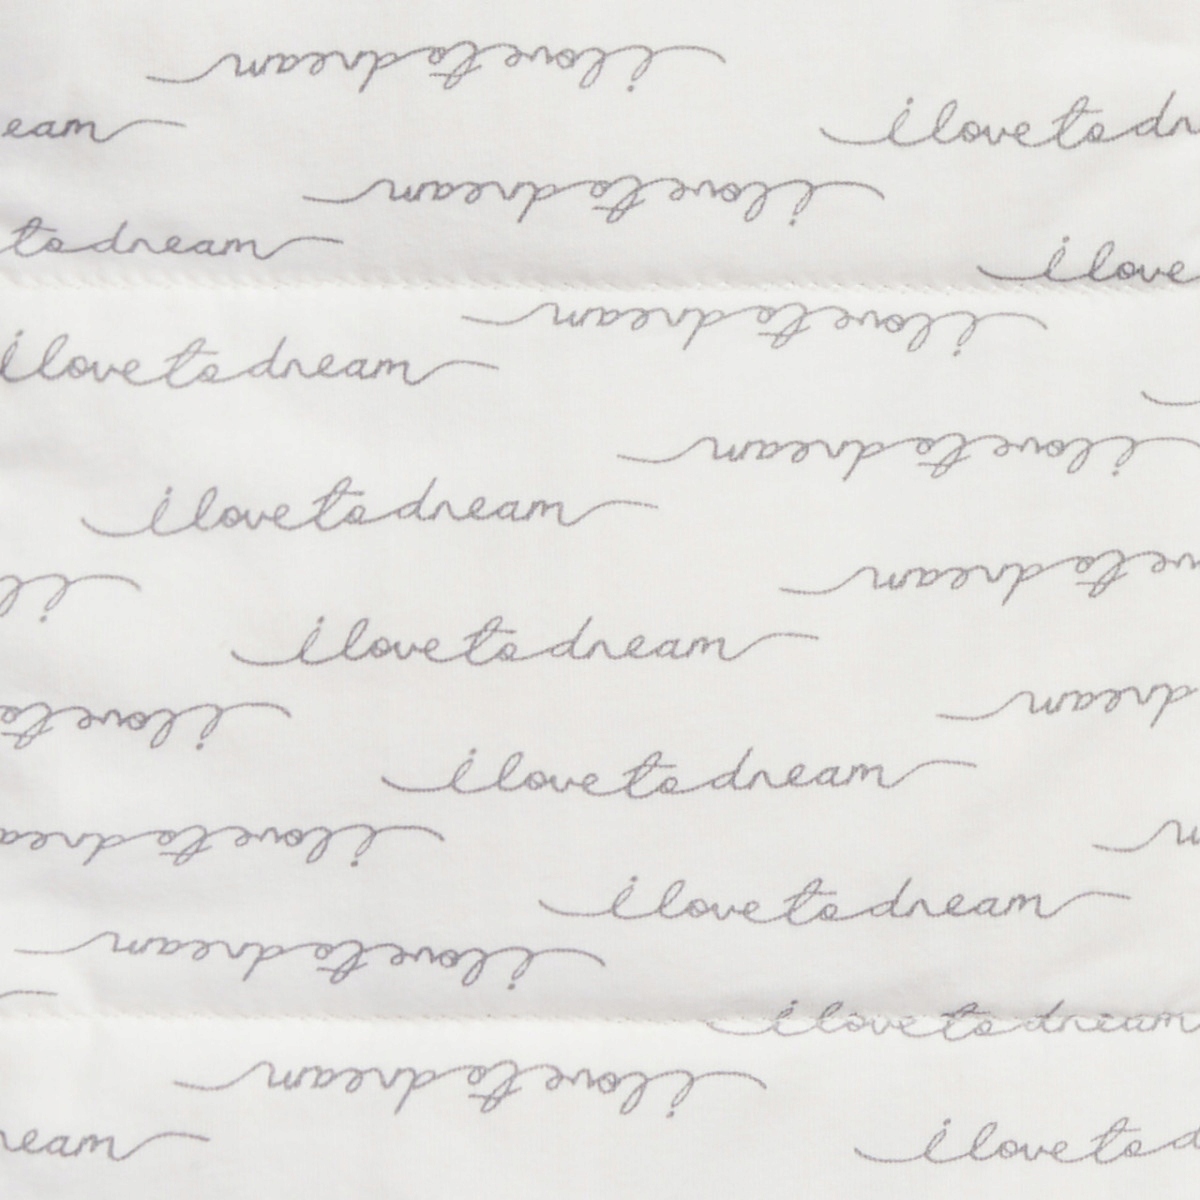 i love to dream
eam i love to dr
i love to dream
to dream i love
i love to dream
i love to dream
i love to dream
i love to dream
il ve to dream
i love to dream
i love to dream
i love to dream
i love to drea m
i love to dream
i love to dream
i love to dream
i love to dream
ream i love to d